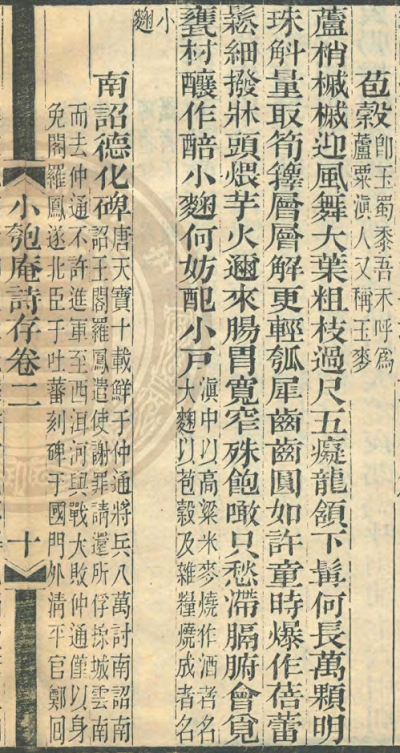 苞穀即玉蜀黍吾禾呼爲
蘆粟滇人又稱玉麥
蘆梢槭槭迎風舞大葉粗枝過尺五癡龍頷下髯何長萬顆明
珠斛量取筍籜層層解更輕瓠犀齒齒圓如許童時爆作蓓蕾
鬆細撥牀頭煨芋火邇來腸胃寬窄殊飽噉只愁滯膈腑會覓
甕村釀作醅小麴何妨配小戶滇中以高粱米麥燒作酒者名
大麴以苞穀及雜糧燒成者名
小
麴
南詔德化碑唐天寶十載鮮于仲通將兵八萬討南詔南
詔王閣羅鳳遣使謝罪請還所俘掠城雲南
而去仲通不許進軍至西洱河與戰大敗仲通僅以身
免閣羅鳳遂北臣于吐蕃刻碑于國門外清平官鄭回
小匏庵詩存卷二
十